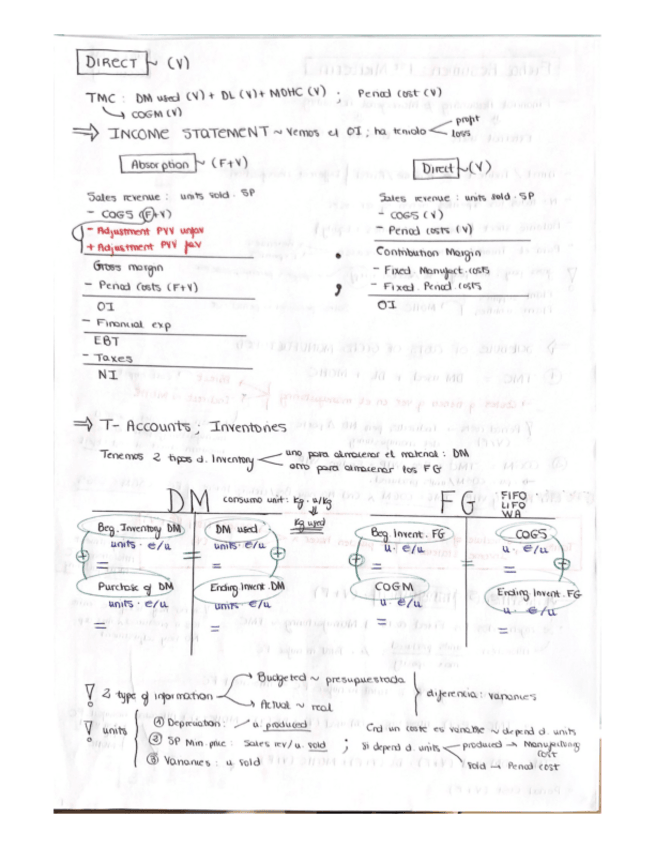 DIRECT ~ (V)
TMC : DM used (V) + DL (V) + MOHC (V) ; Period cost (V)
↳ COGM (V)
⇒ INCOME STATEMENT ~ Vemos el OI ; ha tenido < profit
loss
Absorption ~ (F+V)
Sales revenue : units sold · SP
- COGS (F+V)
- Adjustment PVV unfav
+ Adjustment PVV fav
Gross margin
- Period Costs (F+V)
OI
- Financial exp
EBT
- Taxes
NI
Direct ~ (V)
Sales revenue : units sold · SP
- COGS (V)
- Period costs (V)
Contribution Margin
- Fixed Manufact. costs
- Fixed Period costs
OI
⇒ T- Accounts ; Inventories
Tenemos 2 tipos d. Inventory < uno para almacenar el material : DM
otro para almacenar los FG
DM
consumo unit : Kg · u/Kg
Kg used
Beg. Inventory DM
units · €/u
=
Purchase of DM
units · €/u
=
DM used
units · €/u
=
Ending Invent. DM
units · €/u
=
FG
FIFO
LIFO
WA
Beg. Invent. FG
u · €/u
=
COGM
u · €/u
=
COGS
u · €/u
=
Ending Invent. FG
u · €/u
=
! 2 type of information
Budgeted ~ presupuestada
Actual ~ real
diferencia : variances
! units
① Depreciation : u. produced
② SP Min. price : Sales rev/u. sold
③ Variances : u sold
; Cnd un coste es variable ~ depend d. units
Si depend d. units < produced → Manufacturing cost
sold → Period cost